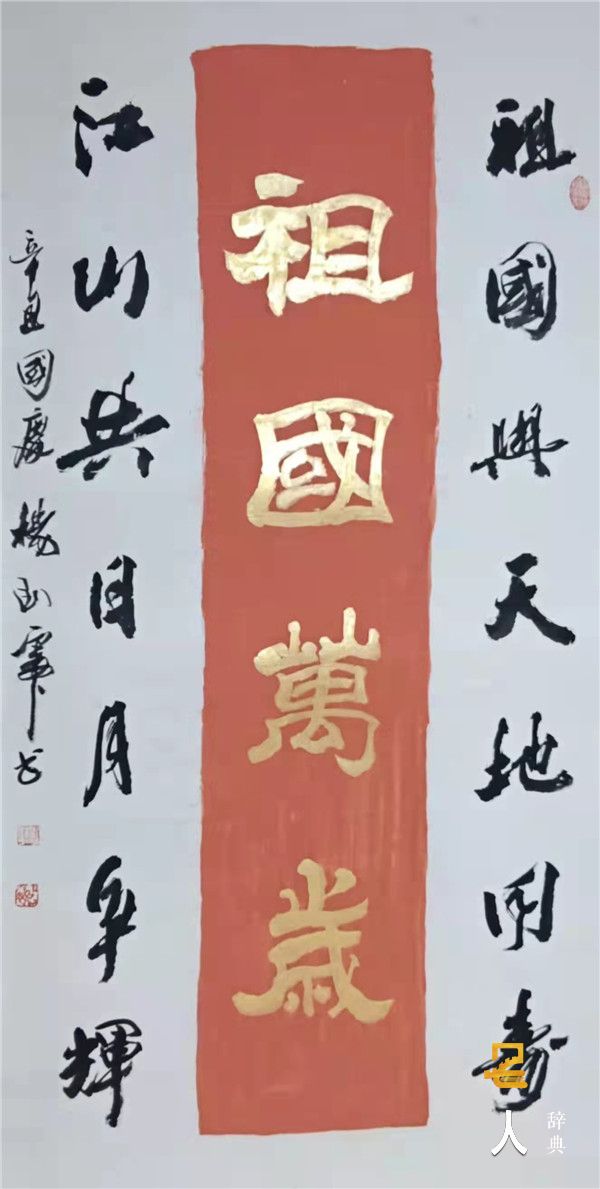 祖國與天地同壽
祖國萬歲
江山共日月争輝
辛丑國慶楊
书
名人
辞典